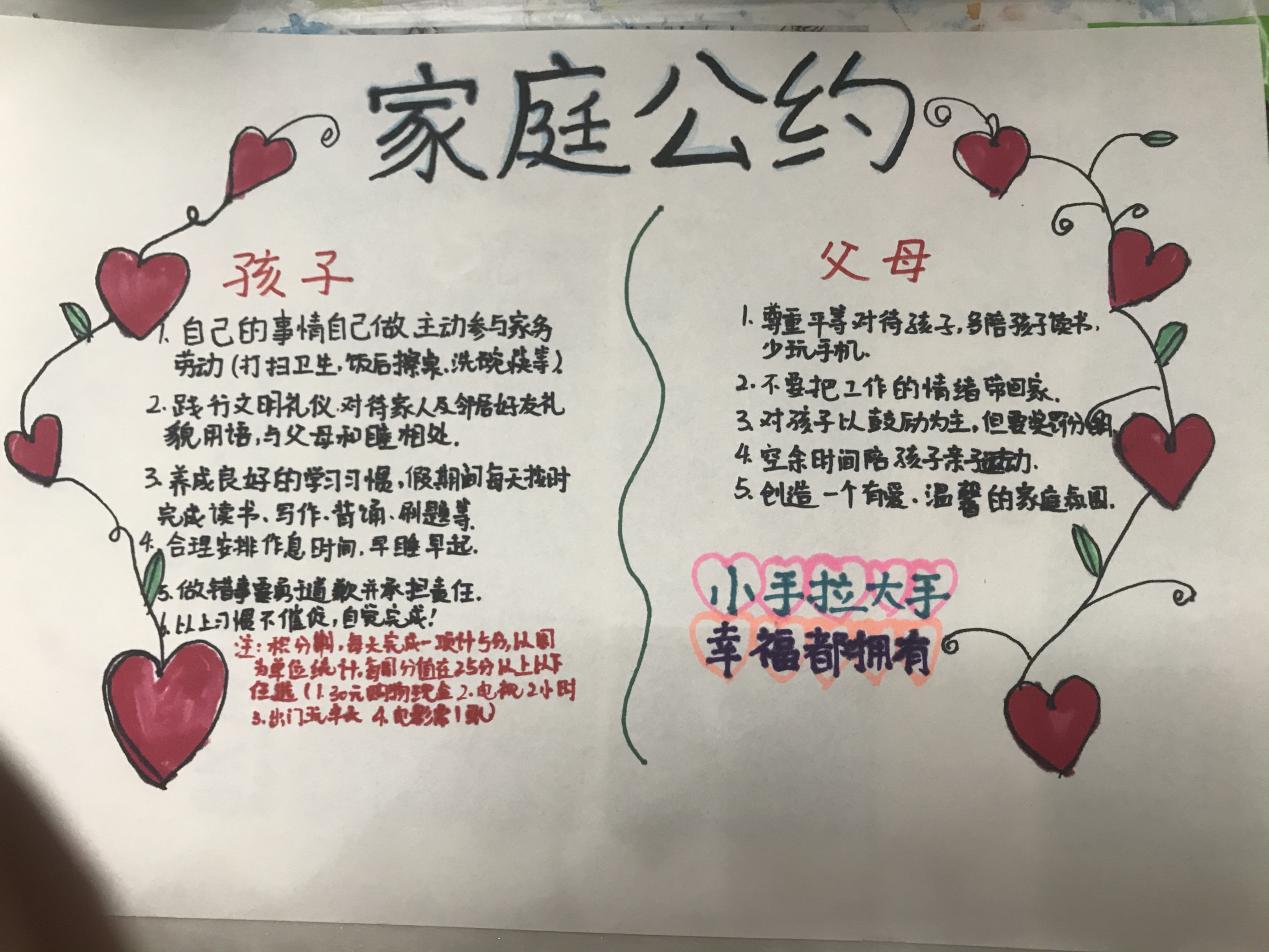 家庭公约
孩子
1. 自己的事情自己做.主动参与家务
劳动(打扫卫生.饭后擦桌.洗碗筷等)
2. 践行文明礼仪.对待家人及邻居好友礼
貌用语,与父母和睦相处.
3. 养成良好的学习习惯,假期间每天按时
完成读书、写作、背诵、刷题等.
4. 合理安排作息时间,早睡早起.
5.做错事要勇于道歉并承担责任.
6.以上习惯不催促,自觉完成!
注:积分制,每天完成一项计5分,以周
为单位统计,每周分值在25分以上以下
任选(1.30元购物现金 2.电视2小时
3.出门玩半天 4.电影票1张)
父母
1. 尊重平等对待孩子,多陪孩子读书,
少玩手机.
2.不要把工作的情绪带回家.
3.对孩子以鼓励为主,但要奖罚分明.
4.空余时间陪孩子亲子运动.
5.创造一个有爱、温馨的家庭氛围.
小手拉大手
幸福都拥有